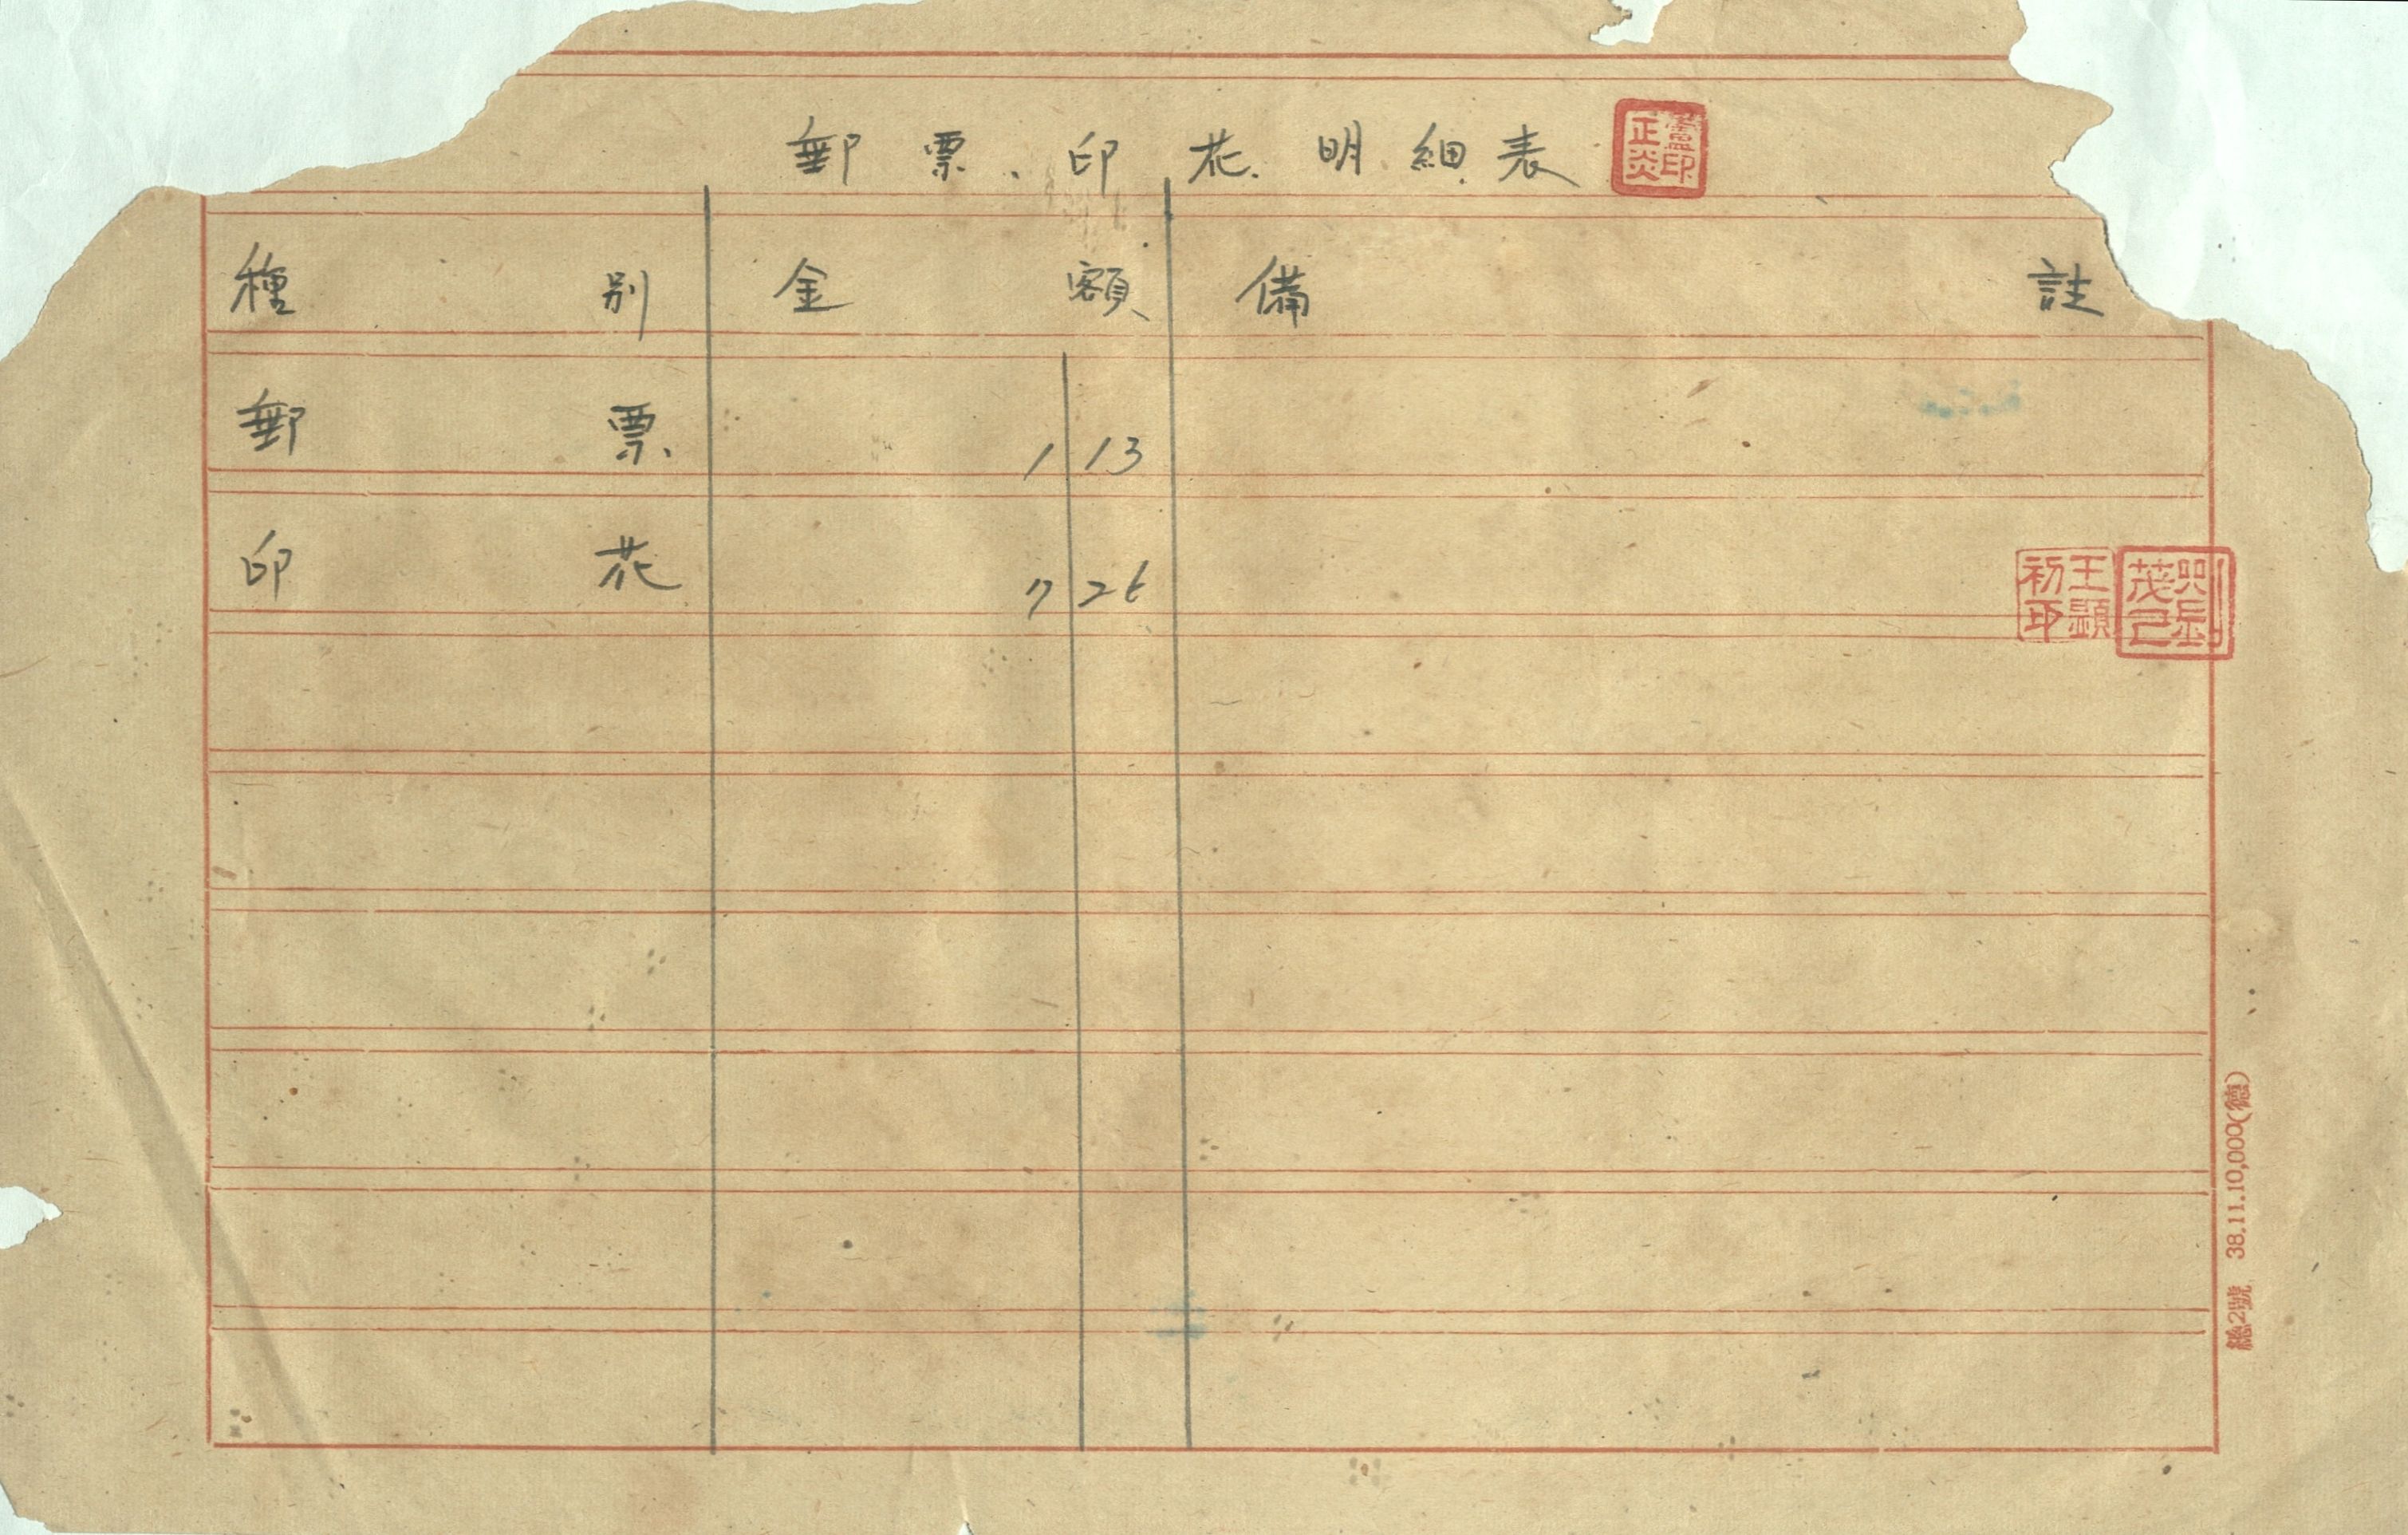 郵票、印花明細表
盧正炎印
種別 金額 備註
郵票 1 13
印花 7 26
王顯初印
總2號 38.11.10,000(德)